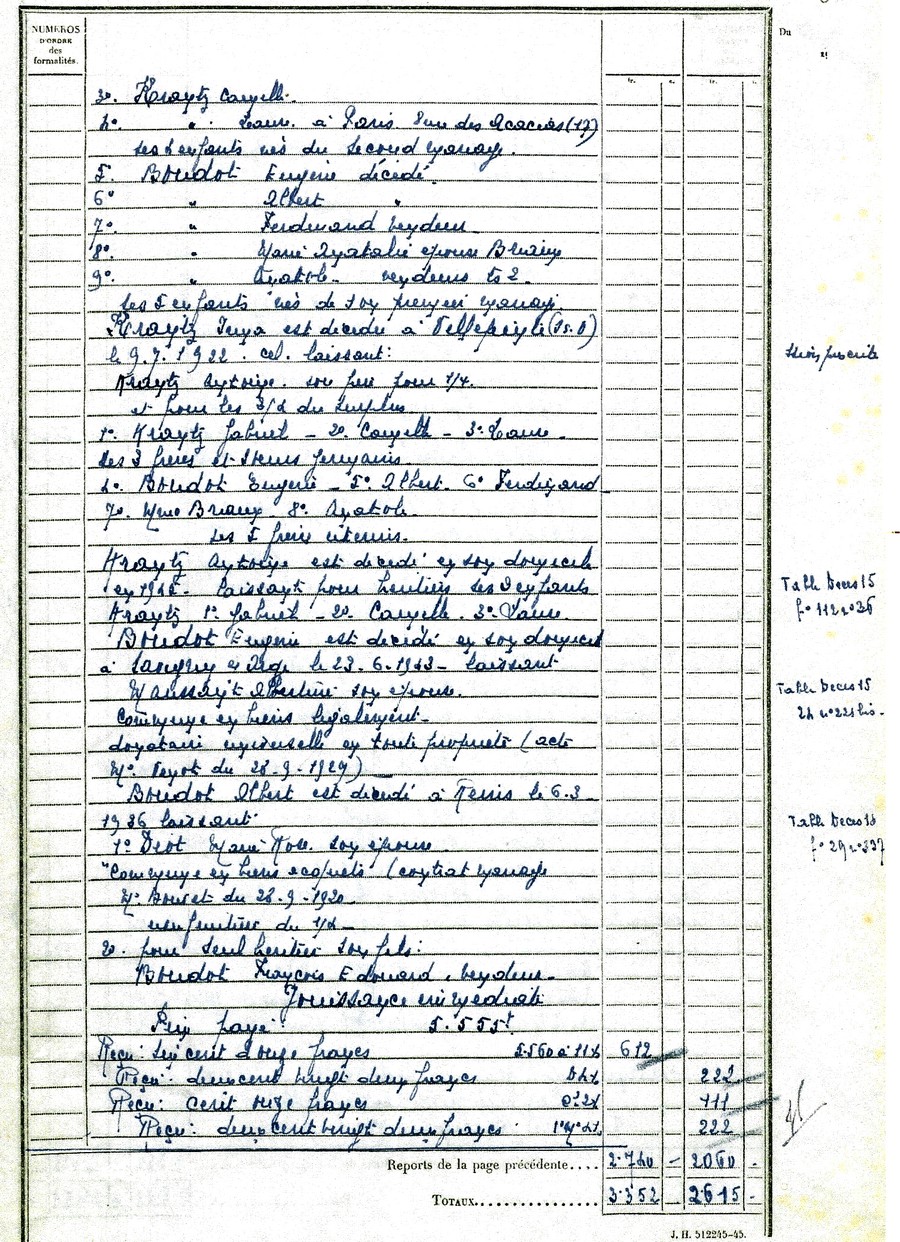 NUMÉROS
D'ORDRE
des
formalités.
Du
3°. Krantz Camille.
4°. " Laure. à Paris. Rue des Acacias (17)
ses 4 enfants nés du second mariage.
5°. Boudot Eugène décédé.
6° " Albert "
7° " Ferdinand vendeur
8° " Marie Anatalie épouse Briaux
9° " Anatole vendeurs ts 2.
ses 5 enfants nés de son premier mariage
Krantz est décédée à
le 9.7.1922. cel. laissant:
Krantz Antoine. son père pour 1/4.
et pour les 3/4 du surplus
1°. Krantz Gabriel - 2°. Camille - 3°. Laure.
ses 3 frères et sœurs germains
4°. Boudot Eugène - 5°. Albert. 6° Ferdinand
7°. Mme Briaux 8°. Anatole
ses 5 frères utérins.
Krantz Antoine est décédé en son domicile
en laissant pour héritiers ses 3 enfants
Krantz 1°. Gabriel - 2°. Camille. 3°. Laure.
Boudot Eugène est décédé en son domicile
à le 23.6.1943 - laissant
Albertine son épouse.
Commune en biens légalement
donataire universelle en toute propriété (acte
Me. du 28-9-1929)
Boudot Albert est décédé à le 6.3
1936 laissant
1° Marie Rose. son épouse
Commune en biens acquêts (contrat mariage
Me. Bouret du 28-9-1920
usufruitière du 1/4
2°. pour seul héritier son fils:
Boudot François Edouard, vendeur.
Jouissance immédiate
Prix payé: 5.555f
Reçu: six cent douze francs 5.560 à 11% 612
Reçu: deux cent vingt deux francs D 4% 222
Reçu: cent onze francs 2% 111
Reçu: deux cent vingt deux francs 222
Reports de la page précédente.... 2.740 - 2060 -
TOTAUX............... 3.352 - 2615 -
J. H. 512245-45.
Table Décès 15
f° 112 n° 36
Table Décès 15
24 n° 221 bis.
Table Décès 14
f° 29 n° 337